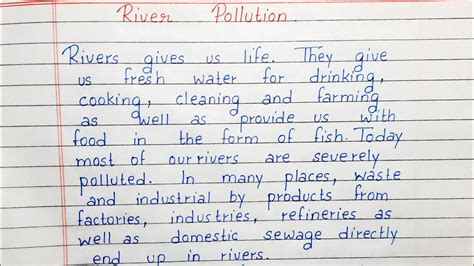 River Pollution.
Rivers gives us life. They give
us fresh water for drinking,
cooking, cleaning and farming
as well as provide us with
food in the form of fish. Today
most of our rivers are severely
polluted. In many places, waste
and industrial by products from
factories, industries, refineries as
well as domestic sewage directly
end up in rivers.